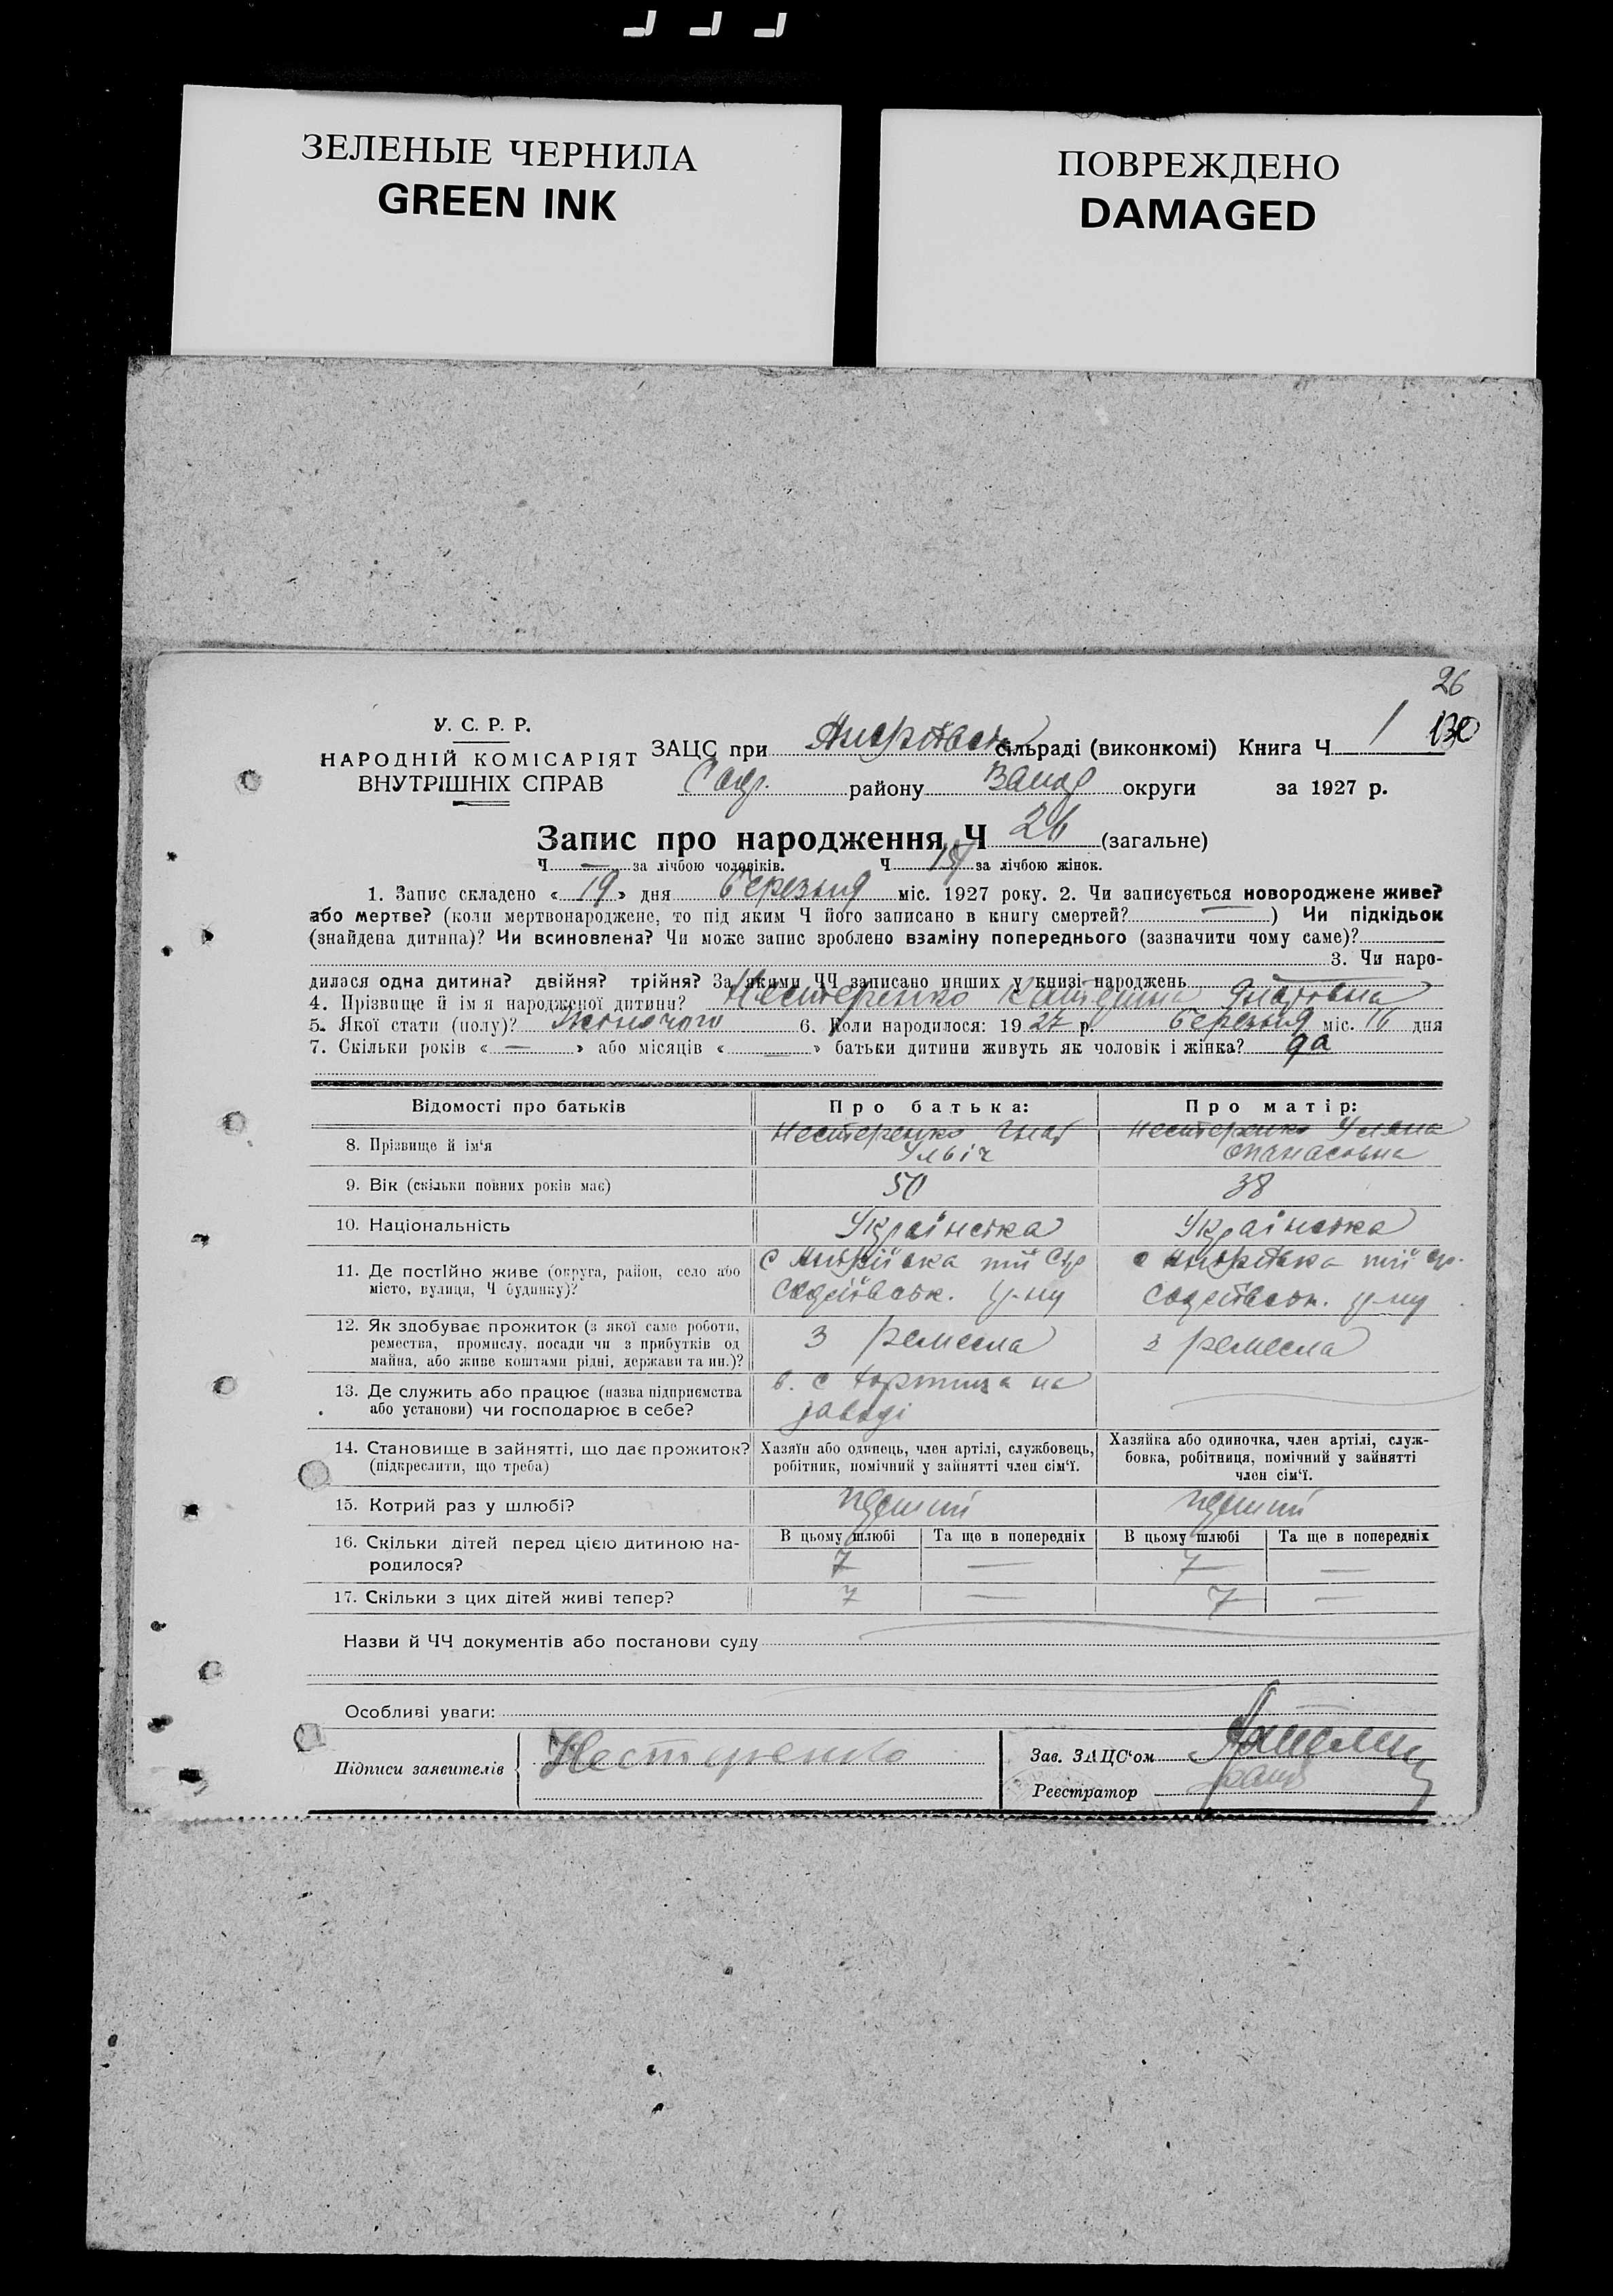 ЗЕЛЕНЫЕ ЧЕРНИЛА
GREEN INK
ПОВРЕЖДЕНО
DAMAGED
26
130
У. С. Р. Р.
НАРОДНІЙ КОМІСАРІЯТ
ВНУТРІШНІХ СПРАВ
ЗАЦС при сільраді (виконкомі) Книга Ч 1
району округи за 1927 р.
Запис про народження Ч 26 (загальне)
Ч — за лічбою чоловіків. Ч за лічбою жінок.
1. Запис складено « 19 » дня березня міс. 1927 року. 2. Чи записується новороджене живе?
або мертве? (коли мертвонароджене, то під яким Ч його записано в книгу смертей? — ) Чи підкідьок
(знайдена дитина)? Чи всиновлена? Чи може запис зроблено взаміну попереднього (зазначити чому саме)?
3. Чи наро-
дилася одна дитина? двійня? трійня? За якими ЧЧ записано инших у книзі народжень
4. Прізвище й ім'я народженої дитини? Нестеренко Катерина Гнатовна
5. Якої стати (полу)? Жіночого 6. Коли народилося: 1927 р. березня міс. 16 дня
7. Скільки років « — » або місяців « — » батьки дитини живуть як чоловік і жінка? да
Відомості про батьків
Про батька:
Про матір:
8. Прізвище й ім'я
Нестеренко Гнат
Улвіч
Нестеренко Уляна
Опанасовна
9. Вік (скільки повних років має)
50
38
10. Національність
Українська
Українська
11. Де постійно живе (округа, район, село або
місто, вулиця, Ч будинку)?
с Андріївка тії
р-ну
с Андріївка тії
р-ну
12. Як здобуває прожиток (з якої саме роботи,
ремества, промислу, посади чи з прибутків од
майна, або живе коштами рідні, держави та ин.)?
З ремесла
з ремесла
13. Де служить або працює (назва підприємства
або установи) чи господарює в себе?
в. с Хортиця на
заводі
14. Становище в зайнятті, що дає прожиток?
(підкреслити, що треба)
Хазяїн або одинець, член артілі, службовець,
робітник, помічний у зайнятті член сім'ї.
Хазяйка або одиночка, член артілі, служ-
бовка, робітниця, помічний у зайнятті
член сім'ї.
15. Котрий раз у шлюбі?
перший
перший
16. Скільки дітей перед цією дитиною на-
родилося?
В цьому шлюбі
Та ще в попередніх
В цьому шлюбі
Та ще в попередніх
7 — 7 —
17. Скільки з цих дітей живі тепер?
7 — 7 —
Назви й ЧЧ документів або постанови суду
Особливі уваги:
Підписи заявителів
Нестеренко
Зав. ЗАЦС'ом
Реєстратор